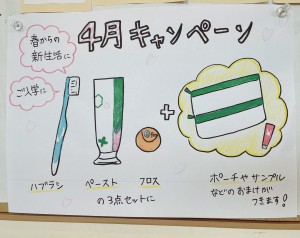 4月キャンペーン
春からの
新生活に
ご入学に
+
ハブラシ
ペースト
フロス
の3点セットに
ポーチや サンプル
などのおまけが
つきます!